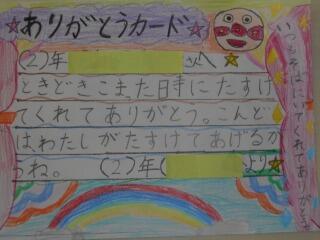 ☆ありがとうカード☆
(2)年 さんへ ☆
ときどきこまった日時にたすけ
てくれてありがとう。こんど
は、わたしがたすけてあげるか
らね。 (2)年( より☆
いつもそばにいてくれてありがとう